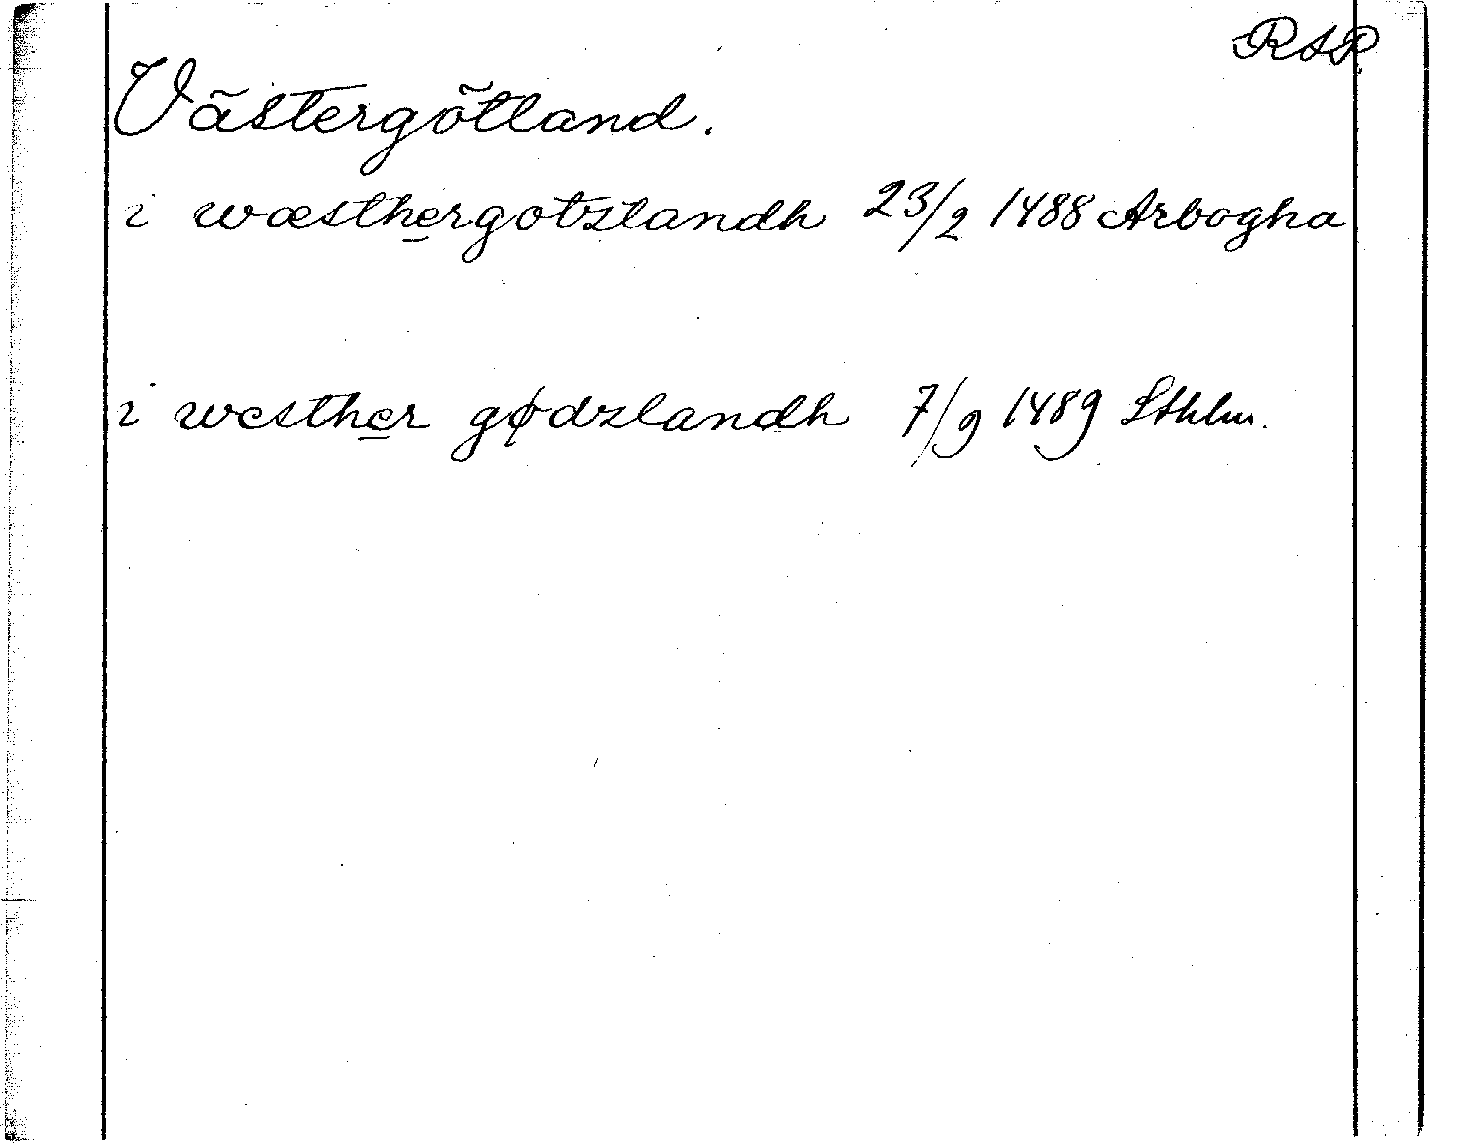 RAP.
Västergötland.
i wæsthergotzlandh 23/2 1488 Arbogha
i westher gødzlandh 7/9 1489 Sthlm.